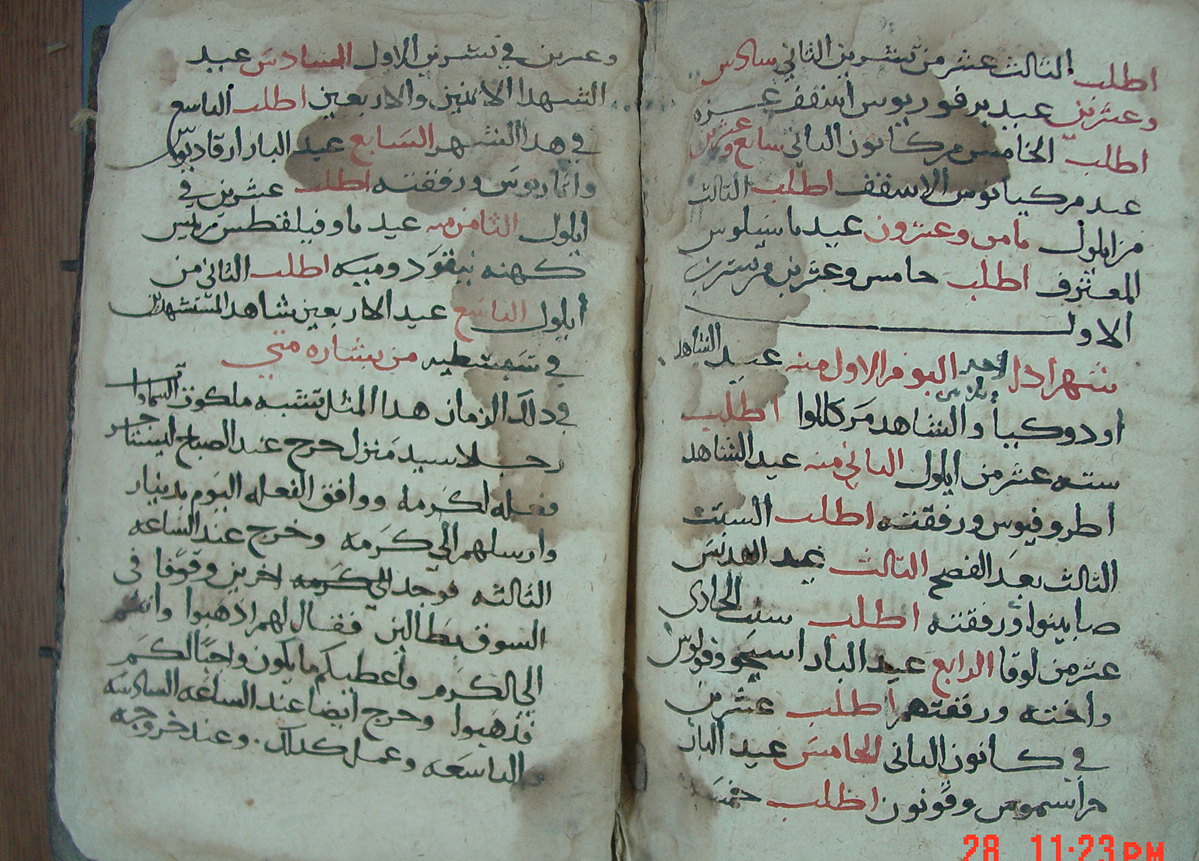 اطلب الثالث عشر من تشرين الثاني سادس
وعشرين عيد برفوريوس اسقف غزه
اطلب الخامس من كانون الثاني سابع وعشرين
عيد مركيانوس الاسقف اطلب الثالث
من ايلول ثامن وعشرون عيد باسيلوس
المعترف اطلب خامس وعشرين من تشرين
الاول
شهر اذار اليوم الاول منه عيد الشاهد
اودوكيا والشاهد اطلب
سته عشر من ايلول الثاني منه عيد الشاهد
ورفقته اطلب السبت
الثالث بعد الفصح الثالث عيد القديس
ورفقته اطلب سبت الحادي
عشر من لوقا الرابع عيد البار
واخته ورفقتهم اطلب عشرين
في كانون الثاني الخامس عيد البار
وقونون اطلب
وعشرين في تشرين الاول السادس عيد
الشهدا الاثنين والاربعين اطلب التاسع
في هدا الشهر السابع عيد البار
ورفقته اطلب عشرين في
ايلول الثامن منه عيد
كهنه نيقودوميه اطلب الثاني من
ايلول التاسع عيد الاربعين شاهد المستشهدين
في سبسطيه من بشاره متي
في دلك الزمان هدا المثل تشبه ملكوت السماوات
رجلا سيد منزل خرج عند الصباح ليستاجر
فعله لكرمه ووافق الفعله اليوم بدينار
وارسلهم الي كرمه وخرج عند الساعه
الثالثه فوجد اخرين وقوفا في
السوق بطالين فقال لهم ادهبوا وانتم
الي الكرم واعطيكم ما يكون واجبا لكم
فدهبوا وخرج ايضا عند الساعه السادسه
والتاسعه وعمل كداك. وعند خروجه
28 11:23 PM